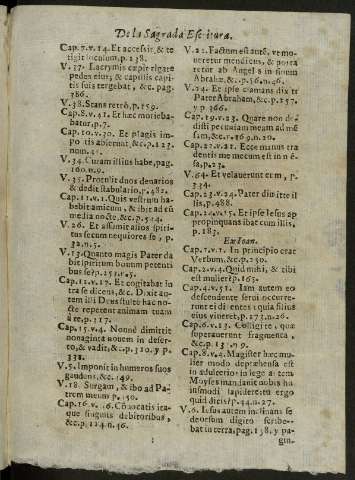 De la Sagrada Escritura.
Cap. 7. v. 14. Et accessit, & te
tigit loculum, p. 238.
V. 37. Lacrymis cœpit rigare
pedes eius, & capillis capi-
tis suis tergebat, &c. pag.
386.
V. 38. Stans retrò, p. 159.
Cap. 8. v. 42. Et hæc morieba-
batur, p. 7.
Cap. 10. v. 30. Et plagis im-
po sitis abierunt, &c. p. 123.
num. 41.
V. 34. Curam illius habe, pag.
160. n. 9.
V. 35. Protulit duos denarios
& dedit stabulario, p. 482.
Cap. 11. v. 5. Quis vestrum ha-
bebit amicum, & ibit ad eũ
media nocte, &c. p. 514.
V. 26. Et assumit alios spiri-
tus secum nequiores se, p.
32. n. 5.
V. 13. Quanto magis Pater da
bit spiritum bonum petenti
bus se? p. 251. n. 5.
Cap. 12. v. 17. Et cogitabat in
tra se dicens, &c. Dixit au-
tem illi Deus stulte hac no-
cte repetent animam tuam
à te. p. 117.
Cap. 15. v. 4. Nonnè dimittit
nonaginta novem in deser-
to, & vadit, &c. p. 320. y p.
332.
V. 5. Imponit in humeros suos
gaudens, &c. 149.
V. 18. Surgam, & ibo ad Pa-
trem meum p. 150.
Cap. 16. v. 6. Cõvocatis ita-
que singulis debitoribus,
&c. p. 124. n. 46.
V. 22. Factum est autẽ, ve mo-
reretur mendicus, & porta
retur ab Angelis in sinum
Abrahæ, &c. p. 36. n. 46.
V. 24. Et ipse clamans dixit
Pater Abraham, &c. p. 157.
y p. 366.
Cap. 19. v. 23. Quare non de-
disti pecuniam meam ad mẽ
sam, &c. p. 169. n. 20.
Cap. 22. v. 21. Ecce manus tra
dentis me mecum est in mẽ-
sa, p. 23.
V. 64. Et velaverunt eum, p.
334.
Cap. 23. v. 24. Pater dimitte il
lis, p. 488.
Cap. 24. v. 15. Et ipse Iesus ap
propinquans ibat cum illis,
p. 183.
Ex Ioan.
Cap. 1. v. 1. In principio erat
Verbum, &c. p. 250.
Cap. 2. v. 4. Quid mihi, & tibi
est mulier? p. 165.
Cap. 4. v. 51. Iam autem eo
descendente servi occurre-
runt ei dicentes quia filius
eius viveret, p. 173. n. 26.
Cap. 6. v. 12. Colligite, quæ
superaverunt fragmenta,
&c. p. 131. n. 9.
Cap. 8. v. 4. Magister hæc mu-
lier modo depræhensa est
in adulterio: in lege autem
Moyses mandavit nobis hu
iusmodi lapidare: tu ergo
quid dicis? p. 44. n. 27.
V. 6. Iesus autem inclinans se
deorsum digito scribe-
bat in terra, pag. 138. y pa
gin.